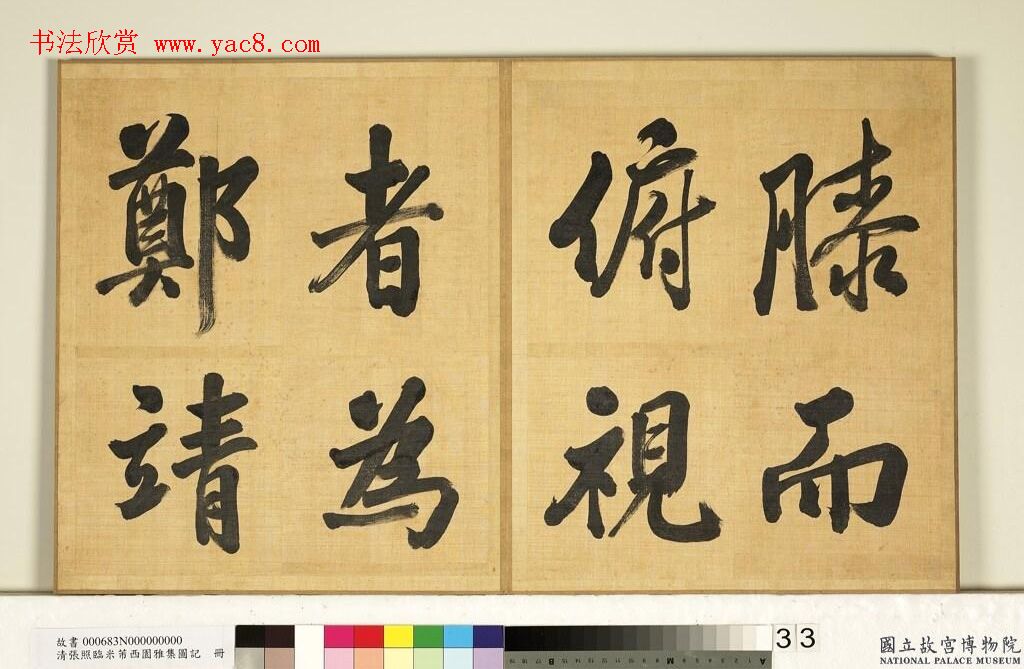 书法欣赏 www.yac8.com
膝而
俯視
者為
鄭靖
故書 000683N000000000
清張照臨米芾西園雅集圖記 冊
33
國立故宮博物院
NATIONAL PALACE MUSEUM